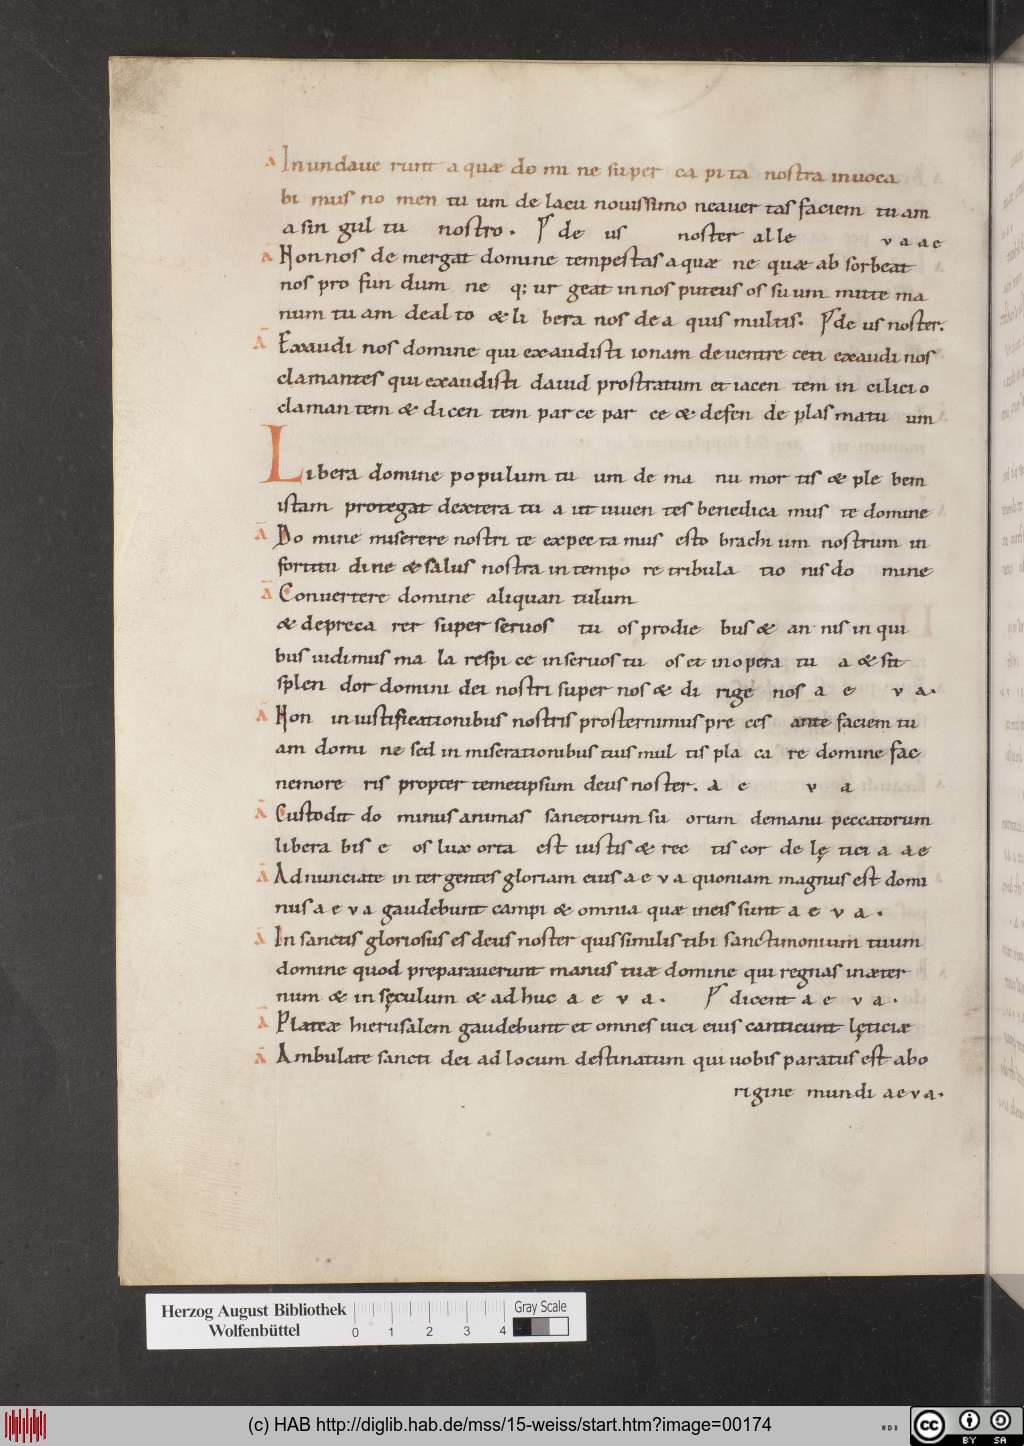 Ā Inundaue runt a quæ do mi ne super ca pi ta nostra inuoca
bi mus no men tu um de lacu nouissimo neauer tas faciem tu am
a sin gul tu nostro. P de us noster alle v a a e
Ā Non nos de mergat domine tempestas a quæ ne quæ ab sorbeat
nos pro fun dum ne q: ur geat in nos puteus os su um mitte ma
num tu am de al to & li bera nos de a quis multis. P de us noster.
Ā Exaudi nos domine qui exaudisti ionam de uentre ceti exaudi nos
clamantes qui exaudisti dauid prostratum et iacen tem in cilicio
claman tem & dicen tem par ce par ce & defen de plas matu um
Libera domine populum tu um de ma nu mor tis & ple bem
istam protegat dextera tu a ut uiuen tes benedica mus te domine
Ā Do mine miserere nostri te expec ta mus esto brachi um nostrum in
fortitu dine & salus nostra in tempo re tribula tio nis do mine
Ā Conuertere domine aliquan tulum
& depreca rer super seruos tu os prodie bus & an nis in qui
bus uidimus ma la respi ce in seruos tu os et in opera tu a & sit
splen dor domini dei nostri super nos & di rige nos a e v a.
Ā Non in iustificationibus nostris prosternimus pre ces ante faciem tu
am domi ne sed in miserationibus tuis mul tis pla ca re domine fac
nemore ris propter temetipsum deus noster. a e v a
Ā Custodit do minus animas sanctorum su orum demanu peccatorum
libera bis e os lux orta est iustis & rec tis cor de lę tici a a e
Ā Adnunciate in ter gentes gloriam eius a e v a quoniam magnus est domi
nus a e v a gaudebunt campi & omnia quæ in eis sunt a e v a.
Ā In sanctis gloriosus es deus noster quis similis tibi sanctimonium tuum
domine quod preparauerunt manus tuæ domine qui regnas in æter
num & in sęculum & adhuc a e v a. P dicent a e v a.
Ā Plateæ hierusalem gaudebunt et omnes uici eius canticunt lęticiæ
Ā Ambulate sancti dei ad locum destinatum qui uobis paratus est abo
rigine mundi a e v a.
Herzog August Bibliothek
Wolfenbüttel
0 1 2 3 4
Gray Scale
(c) HAB http://diglib.hab.de/mss/15-weiss/start.htm?image=00174
WDB
cc BY SA